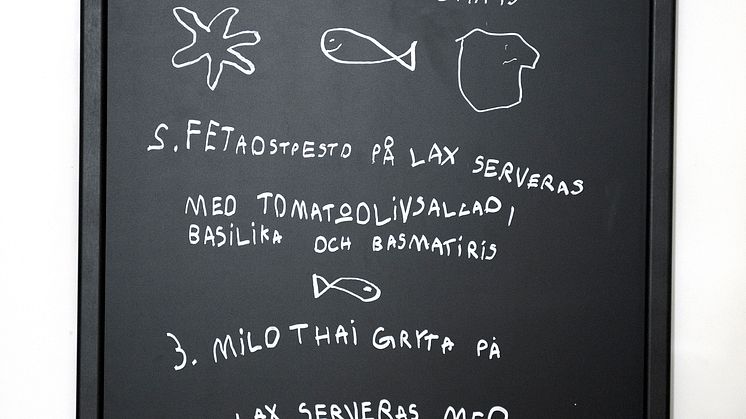 S. FETAOSTPESTO PÅ LAX SERVERAS
MED TOMATOOLIVSALLAD,
BASILIKA OCH BASMATIRIS
3. MILD THAI GRYTA PÅ
LAX SERVERAS MED